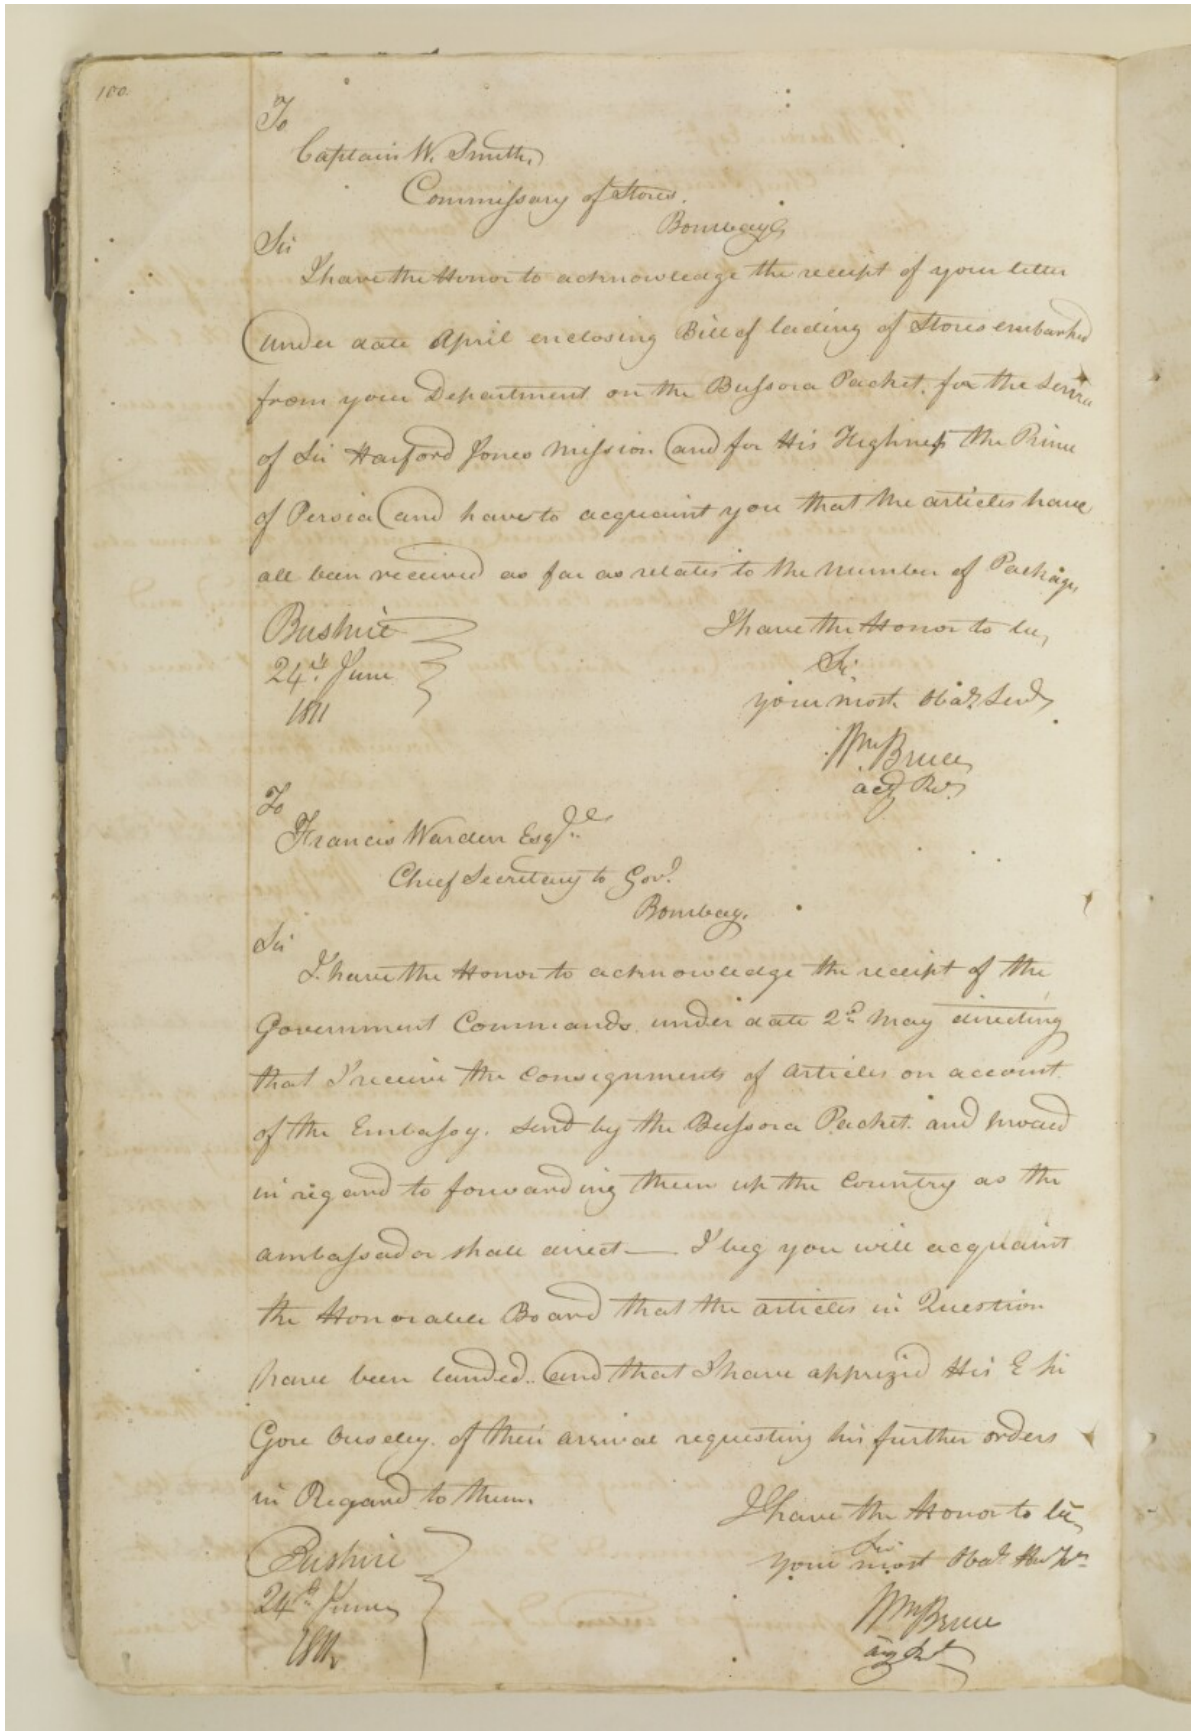 100.
To
Captain W. Smith,
Commissary of Stores.
Bombay
Sir
I have the Honor to acknowledge the receipt of your letter
under date April enclosing Bill of lading of Stores embarked
from your Department on the Bussora Packet, for the Service
of Sir Harford Jones Mission and for His Highness the Prince
of Persia and have to acquaint you that the articles have
all been received as far as relates to the number of Packages
Bushire
24th June
1811
I have the Honor to be,
Sir
your most Obdt. Servt
Wm Bruce
actg Rt.
To
Francis Warden Esqre
Chief Secretary to Govt.
Bombay.
Sir
I have the Honor to acknowledge the receipt of the
Government Commands, under date 2nd May directing
that I receive the Consignments of Articles on account
of the Embassy. send by the Bussora Packet. and proceed
in regard to forwarding them up the Country as the
ambassador shall direct — I beg you will acquaint
the Honorable Board that the articles in Question
have been landed.. and that I have apprized His E Sir
Gore Ouseley. of their arrival requesting his further orders
in Regard to them.
I have the Honor to be
Sir
your most Obdt.
Bushire
24th June
1811
Wm Bruce